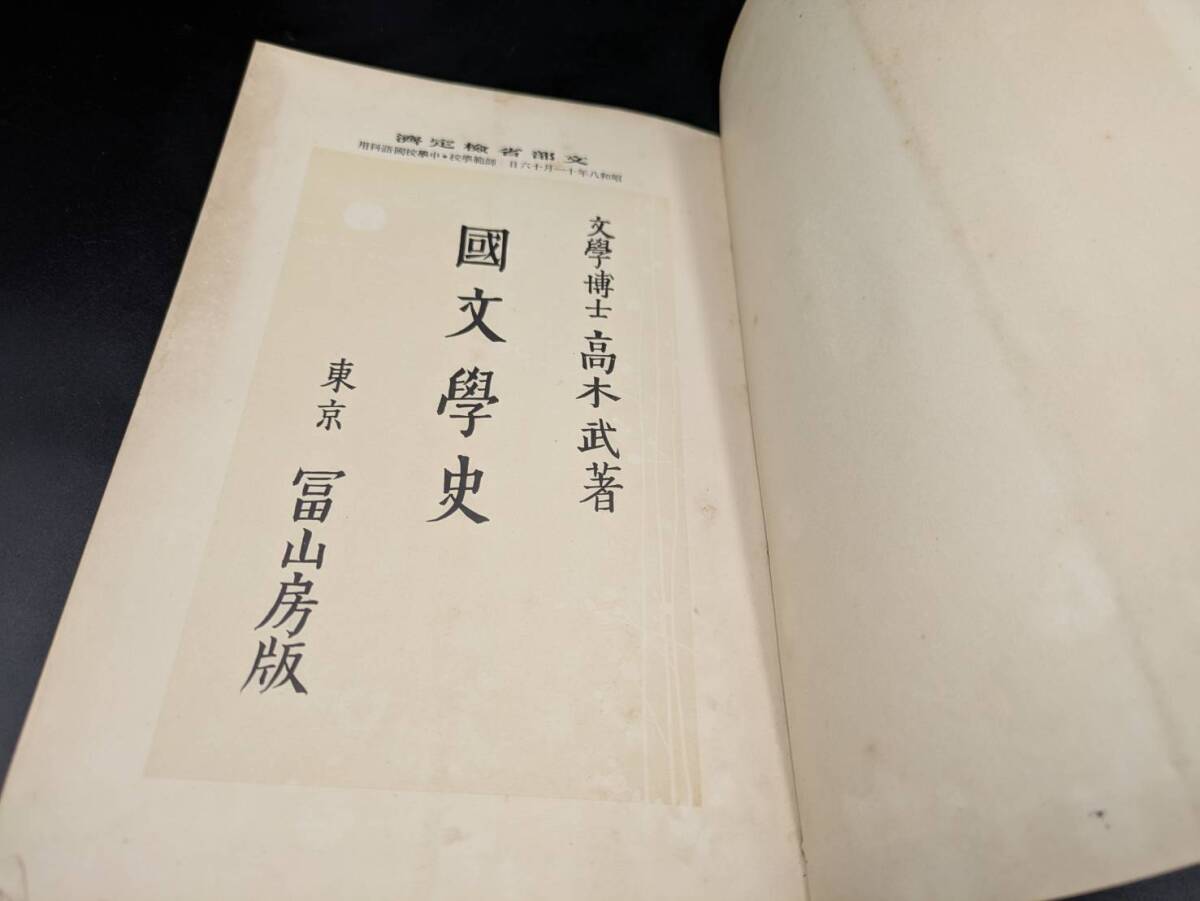 文部省檢定濟
昭和八年十一月十六日 師範學校・中學校國語科用
文學博士 高木武著
國文學史
東京 冨山房版